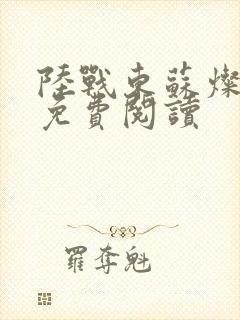 陸戰東蘇燦
免費閱讀
羅奪魁